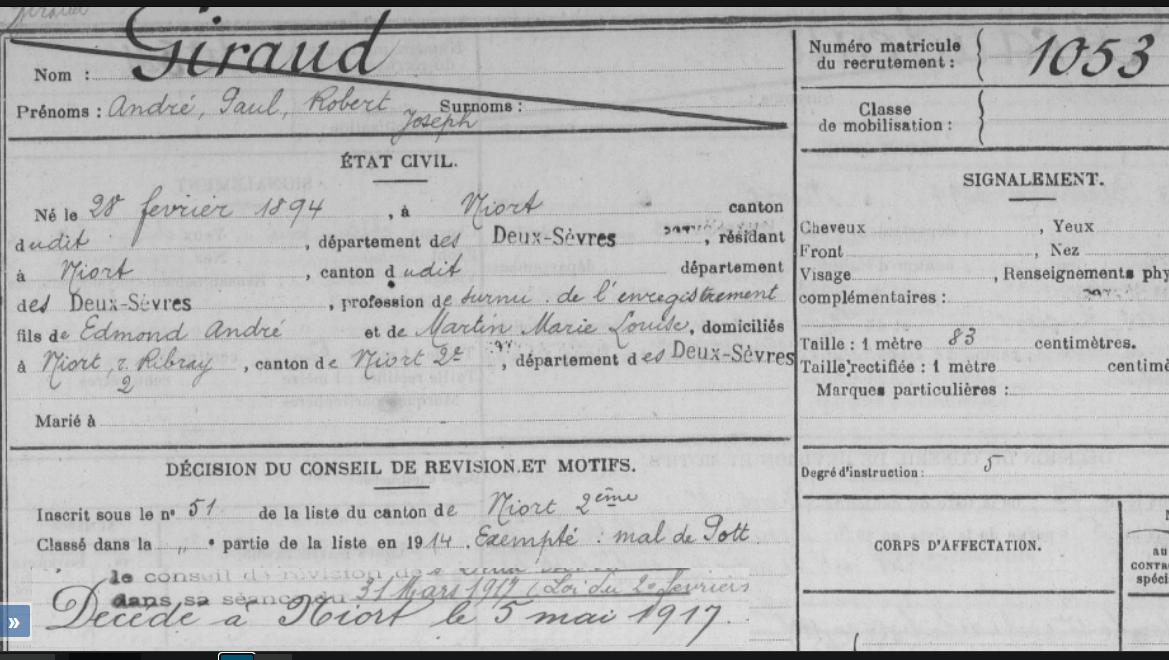 Giraud
Nom : Giraud
Numéro matricule
du recrutement : 1053
Prénoms : André, Paul, Robert Surnoms :
Joseph
Classe
de mobilisation :
ÉTAT CIVIL.
Né le 28 février 1894, à Niort canton
dudit, département des Deux-Sèvres, résidant
à Niort, canton dudit département
des Deux-Sèvres, profession de surnu. de l'enregistrement
fils de Edmond André et de Martin Marie Louise, domiciliés
à Niort, r. Ribray, canton de Niort 2e, département des Deux-Sèvres
2
Marié à
SIGNALEMENT.
Cheveux, Yeux
Front, Nez
Visage, Renseignements phy
complémentaires :
Taille : 1 mètre 83 centimètres.
Taille rectifiée : 1 mètre centimè
Marques particulières :
Degré d'instruction : 5
DÉCISION DU CONSEIL DE REVISION ET MOTIFS.
Inscrit sous le nº 51 de la liste du canton de Niort 2ème
Classé dans la " partie de la liste en 1914. Exempté : mal de Pott
le conseil de révision de
dans sa séance du 31 Mars 1917 (Loi du 20 février
Décédé à Niort le 5 mai 1917.
CORPS D'AFFECTATION.
au
CONTR
spéci
»